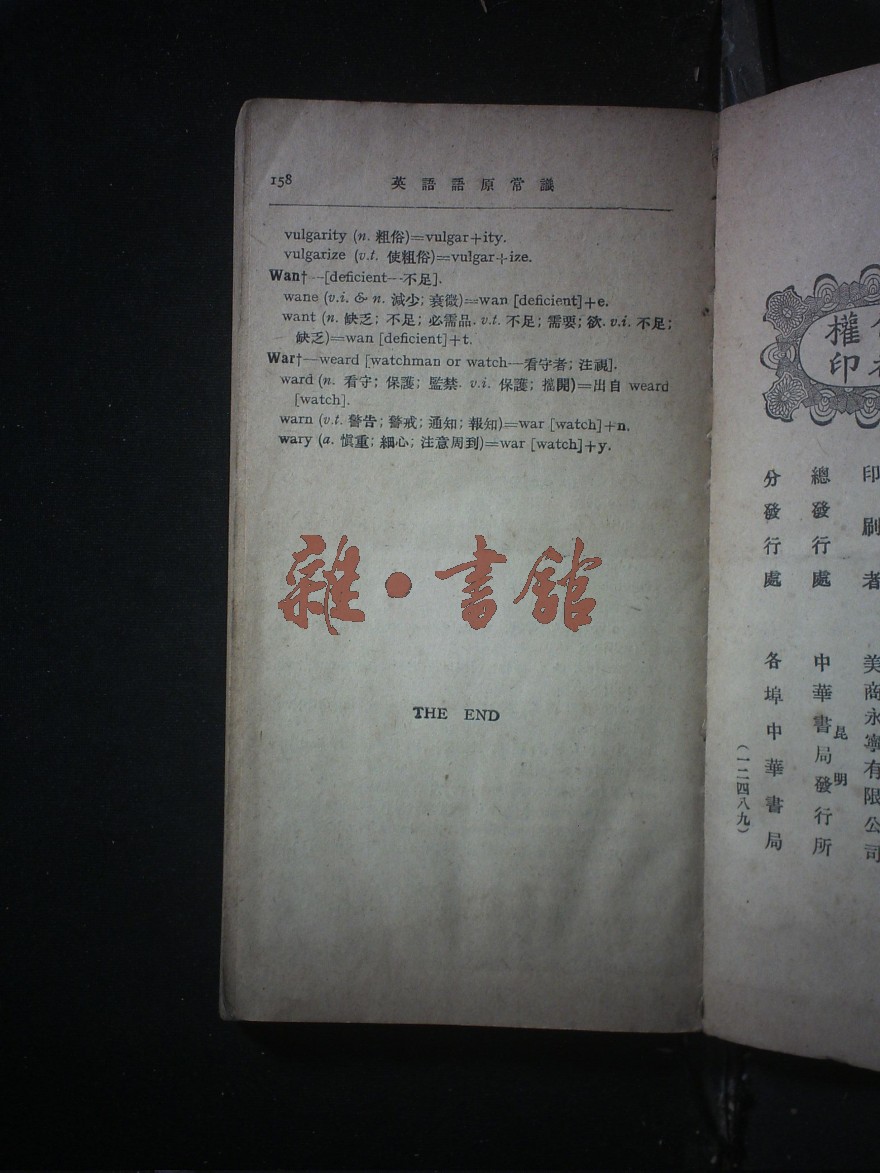 158 英語語原常識
vulgarity (n. 粗俗)=vulgar+ity.
vulgarize (v.t. 使粗俗)=vulgar+ize.
Wan†—[deficient—不足].
wane (v.i. & n. 減少; 衰微)=wan [deficient]+e.
want (n. 缺乏; 不足; 必需品. v.t. 不足; 需要; 欲. v.i. 不足;
缺乏)=wan [deficient]+t.
War†—weard [watchman or watch—看守者; 注視].
ward (n. 看守; 保護; 監禁. v.i. 保護; 擋開)=出自 weard
[watch].
warn (v.t. 警告; 警戒; 通知; 報知)=war [watch]+n.
wary (a. 慎重; 細心; 注意周到)=war [watch]+y.
雜·書館
THE END
權
印
印刷者 美商永寧有限公司
總發行處 中華書局發行所
昆明
分發行處 各埠中華書局
(一二四八九)